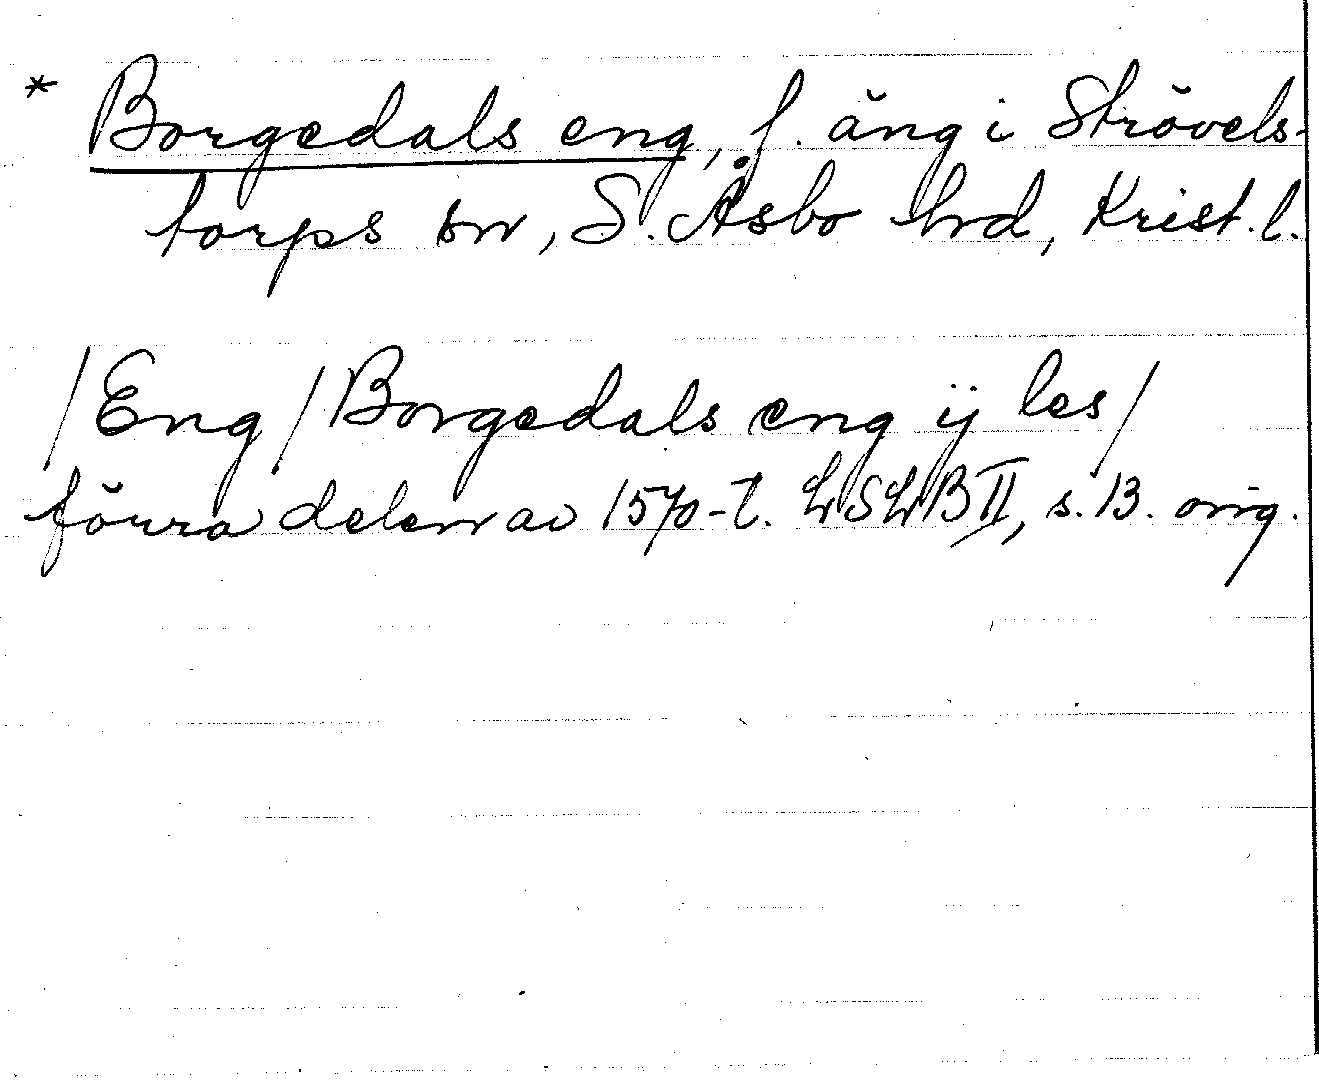 * Borgedals eng, f. äng i Strövels-
torps sn, S. Åsbo hrd, Krist. l.
/Eng/ Borgedals eng ij les/
förra delen av 1570-t. LSLB II, s. 13. orig.